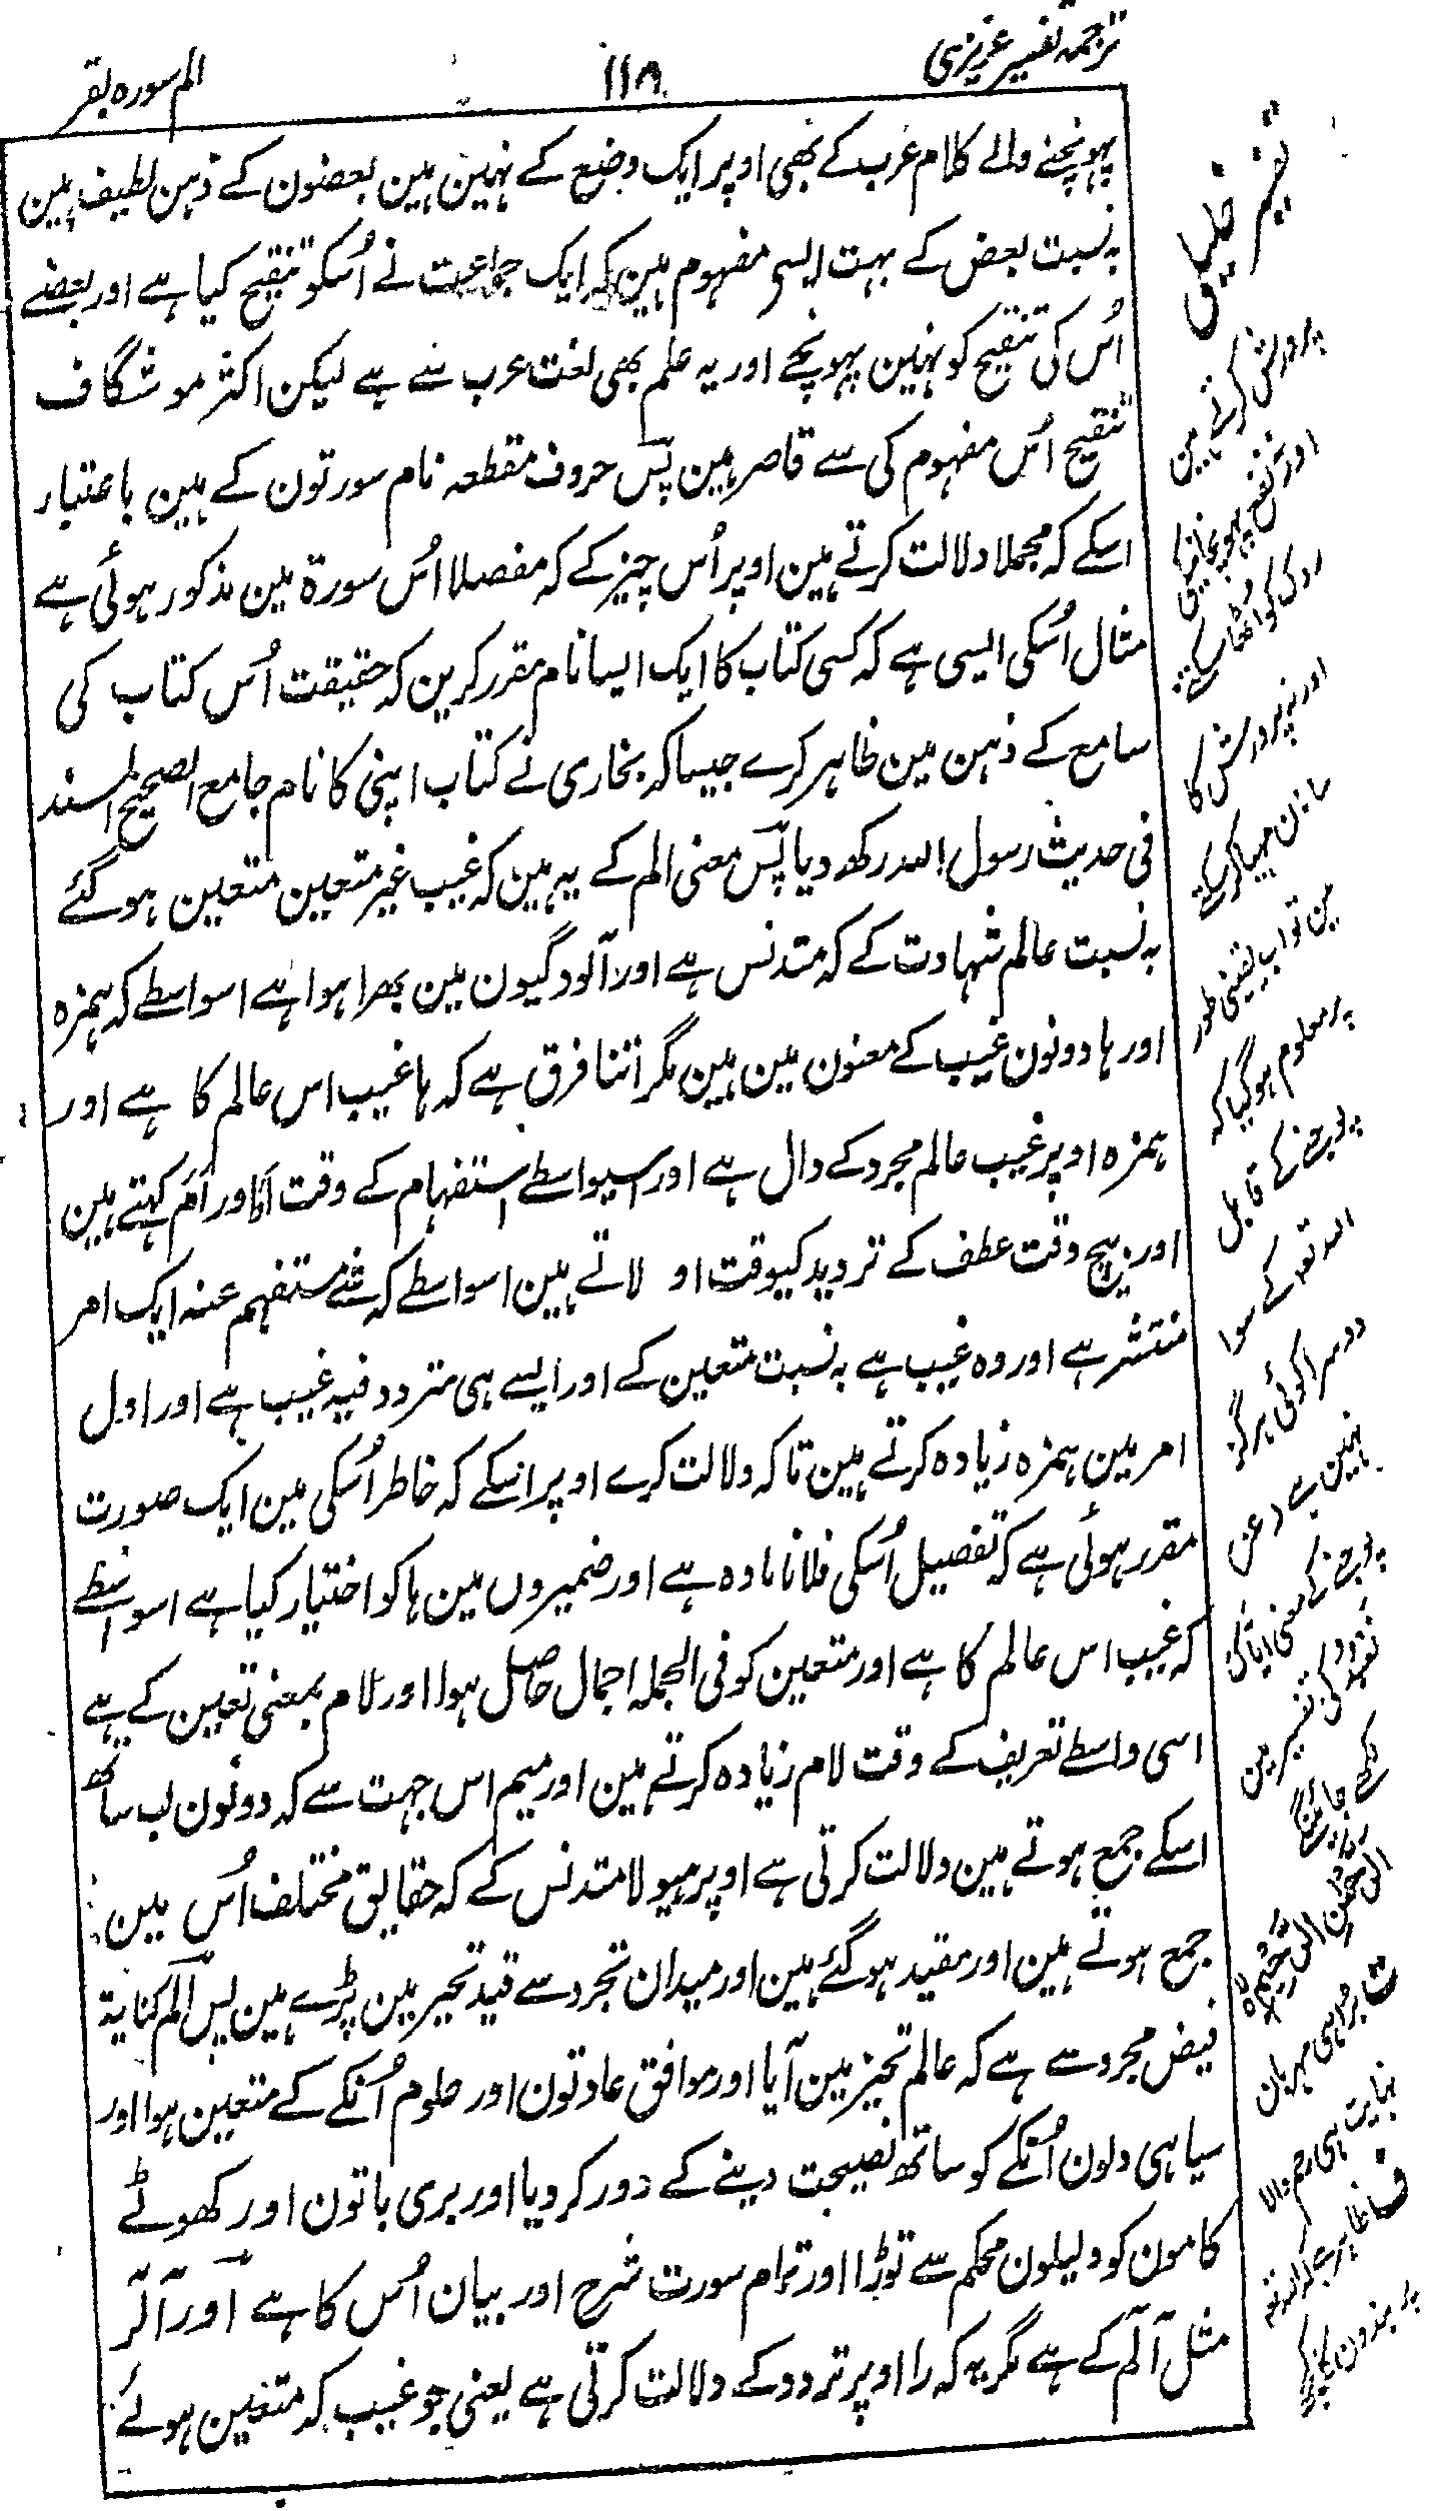 ترجمہ تفسیر عزیزی
۱۱۸
الم سورہ بقر
پہونچنے والے کلام عرب کے بھی اوپر ایک وضع کے نہین ہین بعضون کے ذہن لطیف ہین
بہ نسبت بعض کے بہت ایسی مفہوم ہین کہ ایک جماعت نے اُسکو تنقیح کیا ہے اور بعضے
اُس کی تنقیح کو نہین پہونچے اور یہ علم بھی لغت عرب سے ہے لیکن اکثر موشگاف
تنقیح اُس مفہوم کی سے قاصر ہین پس حروف مقطعہ نام سورتون کے ہین باعتبار
اسکے کہ مجملا دلالت کرتے ہین اوپر اُس چیز کے کہ مفصلا اُس سورۃ مین مذکور ہوئی ہے
مثال اُسکی ایسی ہے کہ کسی کتاب کا ایک ایسا نام مقرر کرین کہ حقیقت اُس کتاب کی
سامع کے ذہن مین ظاہر کرے جیسا کہ بخاری نے کتاب اپنی کا نام جامع الصحیح المسند
فی حدیث رسول اللہ رکھ دیا پس معنی الم کے یہ ہین کہ غیب غیر متعین متعین ہو گئے
بہ نسبت عالم شہادت کے کہ متدنس ہے اور آلودگیون مین بھرا ہوا ہے اسواسطے کہ ہمزہ
اور ہا دونون غیب کے معنون مین ہین مگر اتنا فرق ہے کہ ہا غیب اس عالم کا ہے اور
ہمزہ اوپر غیب عالم مجرد کے دال ہے اور اسیواسطے استفہام کے وقت أ اور اَم کہتے ہین
اور بیچ وقت عطف کے تردید کیوقت او لاتے ہین اسواسطے کہ شئے مستفہم عنہ ایک امر
منتشر ہے اور وہ غیب ہے بہ نسبت متعین کے اور ایسے ہی متردد فیہ غیب ہے اور اول
امر مین ہمزہ زیادہ کرتے ہین تاکہ دلالت کرے اوپر اسکے کہ خاطر اُسکی مین ایک صورت
مقرر ہوئی ہے کہ تفصیل اُسکی فلانا مادہ ہے اور ضمیروں مین ہا کو اختیار کیا ہے اسواسطے
کہ غیب اس عالم کا ہے اور متعین کو فی الجملہ اجمال حاصل ہوا اور لام بمعنی تعین کے ہے
اسی واسطے تعریف کے وقت لام زیادہ کرتے ہین اور میم اس جہت سے کہ دونون لب ساتھ
اسکے جمع ہوتے ہین دلالت کرتی ہے اوپر ہیولا متدنس کے کہ حقایق مختلف اُس مین
جمع ہوتے ہین اور مقید ہو گئے ہین اور میدان تجرد سے قید تحیز مین پڑے ہین پس الم کنایۃ
فیض مجرد سے ہے کہ عالم تحیز مین آیا اور موافق عادتون اور علوم اُنکے کے متعین ہوا اور
سیاہی دلون اُنکے کو ساتھ نصیحت دینے کے دور کر دیا اور بری باتون اور کھوٹے
کامون کو دلیلون محکم سے توڑا اور تمام سورت شرح اور بیان اُس کا ہے اور الر
مثل الم کے ہے مگر یہ کہ را اوپر تردد کے دلالت کرتی ہے یعنی جو غیب کہ متعین ہوئے
پرورش کرتے ہین
اور نفع پہونچانے
اور پرورش کا
سامان مہیا کرتے
ہین تو اب یقینی طور
پر معلوم ہو گیا کہ
پوجنے کے قابل
اللہ تعہ کے سوا
دوسرا کوئی ہرگز
نہین ہے
نعبد کی تفسیر مین
الرحمن الرحیم
ت بڑا ہی مہربان
نہایت ہی رحم والا
ف